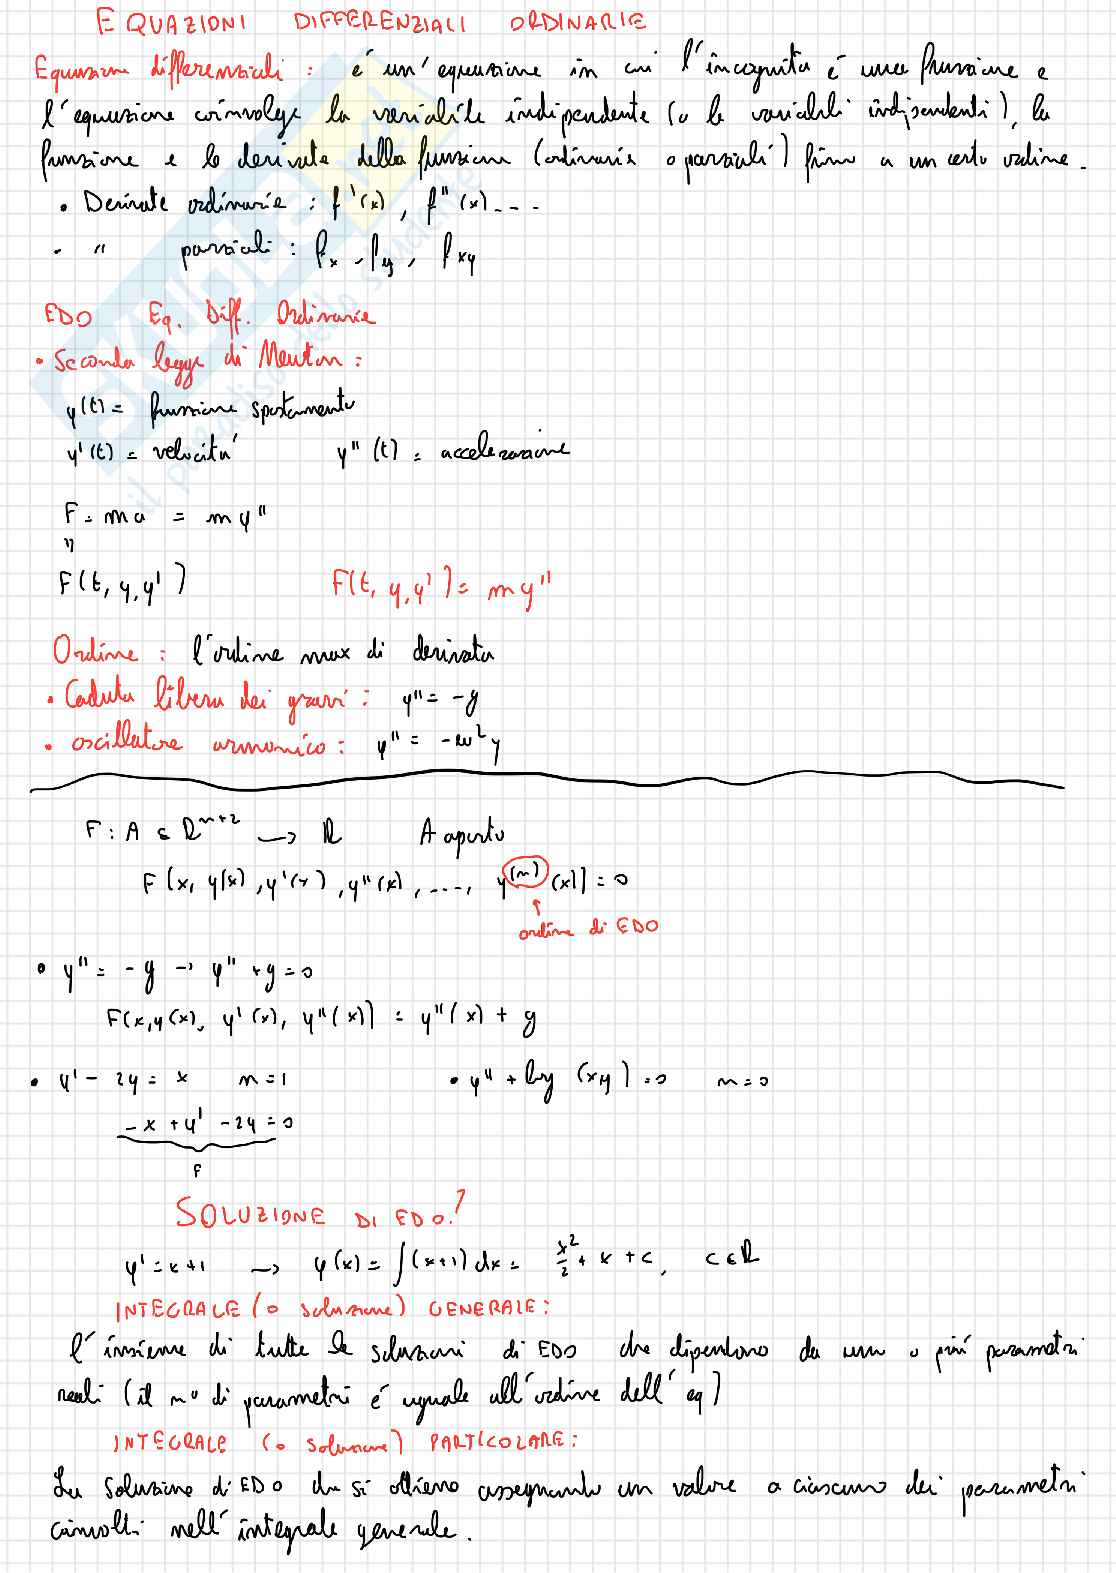 EQUAZIONI DIFFERENZIALI ORDINARIE
Equazione differenziali : é un' equazione in cui l'incognita é una funzione e
l'equazione coinvolge la variabile indipendente (o le variabili indipendenti), la
funzione e le derivate della funzione (ordinarie o parziali) fino a un certo ordine.
• Derivate ordinarie : f'(x) , f''(x) ----
• " parziali : fx , fy , fxy
EDO Eq. Diff. Ordinarie
• Seconda legge di Newton :
y(t) = funzione spostamento
y'(t) = velocitá y''(t) = accelerazione
F = ma = my''
"
F(t, y, y') F(t, y, y') = my''
Ordine : l'ordine max di derivata
• Caduta libera dei gravi : y'' = -g
• oscillatore armonico : y'' = -ω² y
F : A ⊆ ℝⁿ⁺² → ℝ A aperto
F(x, y(x), y'(x), y''(x), ...., y⁽ⁿ⁾(x)) = 0
↑
ordine di EDO
• y'' = -g → y'' + g = 0
F(x, y(x), y'(x), y''(x)) = y''(x) + g
• y' - 2y = x n = 1 • y'' + log (xy) = 0 n = 0
-x + y' - 2y = 0
F
SOLUZIONE DI EDO?
y' = x+1 → y(x) = ∫(x+1) dx = x²/2 + x + c, c ∈ ℝ
INTEGRALE (o soluzione) GENERALE :
l'insieme di tutte le soluzioni di EDO che dipendono da uno o piú parametri
reali (il nº di parametri é uguale all'ordine dell'eq)
INTEGRALE (o soluzione) PARTICOLARE :
La soluzione di EDO che si ottiene assegnando un valore a ciascuno dei parametri
coinvolti nell'integrale generale.